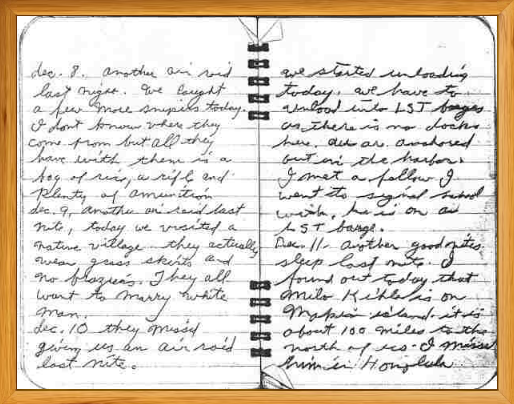 dec. 8. another air raid
last night. We caught
a few more snipers today.
I dont know where they
come from but all they
have with them is a
bag of rice, a rifle and
plenty of amunition
dec. 9, another air raid last
nite, today we visited a
native village they actually
wear grass skirts and
no They all
want to marry white
man.
dec. 10 they missd
giving us an air raid
last nite.
we started unloading
today. we have to
unload into LST barges
as there is no docks
here. are anchored
out in the harbor.
I met a fellow I
went to signal school
with, he is on an
LST barge.
Dec. 11- another good nites
sleep last nite. I
found out today that
Milo is on
Makin island. it is
about 100 miles to the
north of us. I missd
him in Honolulu